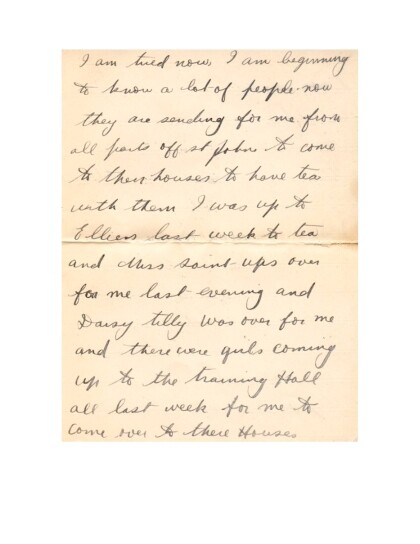 I am tired now, I am beginning
to know a lot of people now
they are sending for me from
all parts off st Johns to come
to their houses to have tea
with them I was up to
Ellens last week to tea
and Miss Saint ups over
for me last evening and
Daisy tilly was over for me
and there were girls coming
up to the training Hall
all last week for me to
come over to there Houses